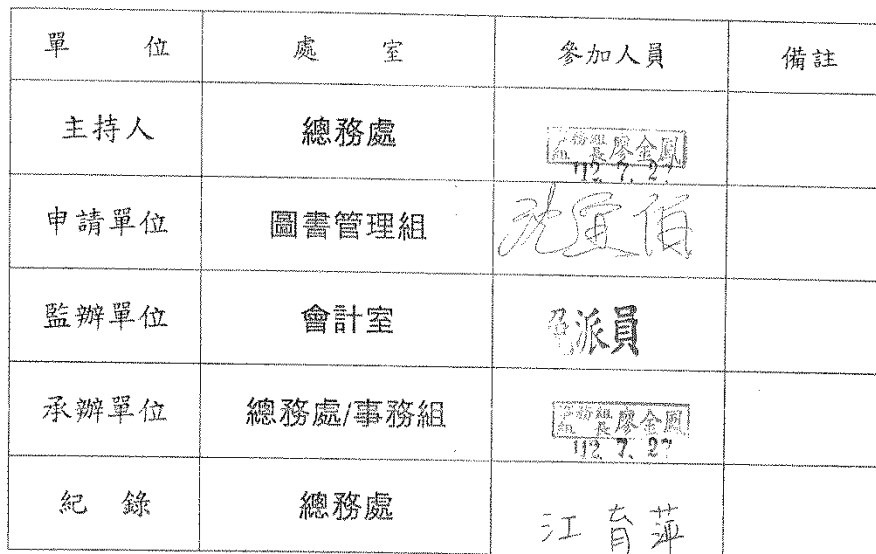 單 位 處 室 參加人員 備註
主持人 總務處 事務組組長廖金鳳
112. 7. 27
申請單位 圖書管理組 沈宜佰
監辦單位 會計室 派員
承辦單位 總務處/事務組 事務組組長廖金鳳
112. 7. 27
紀 錄 總務處 江育萍